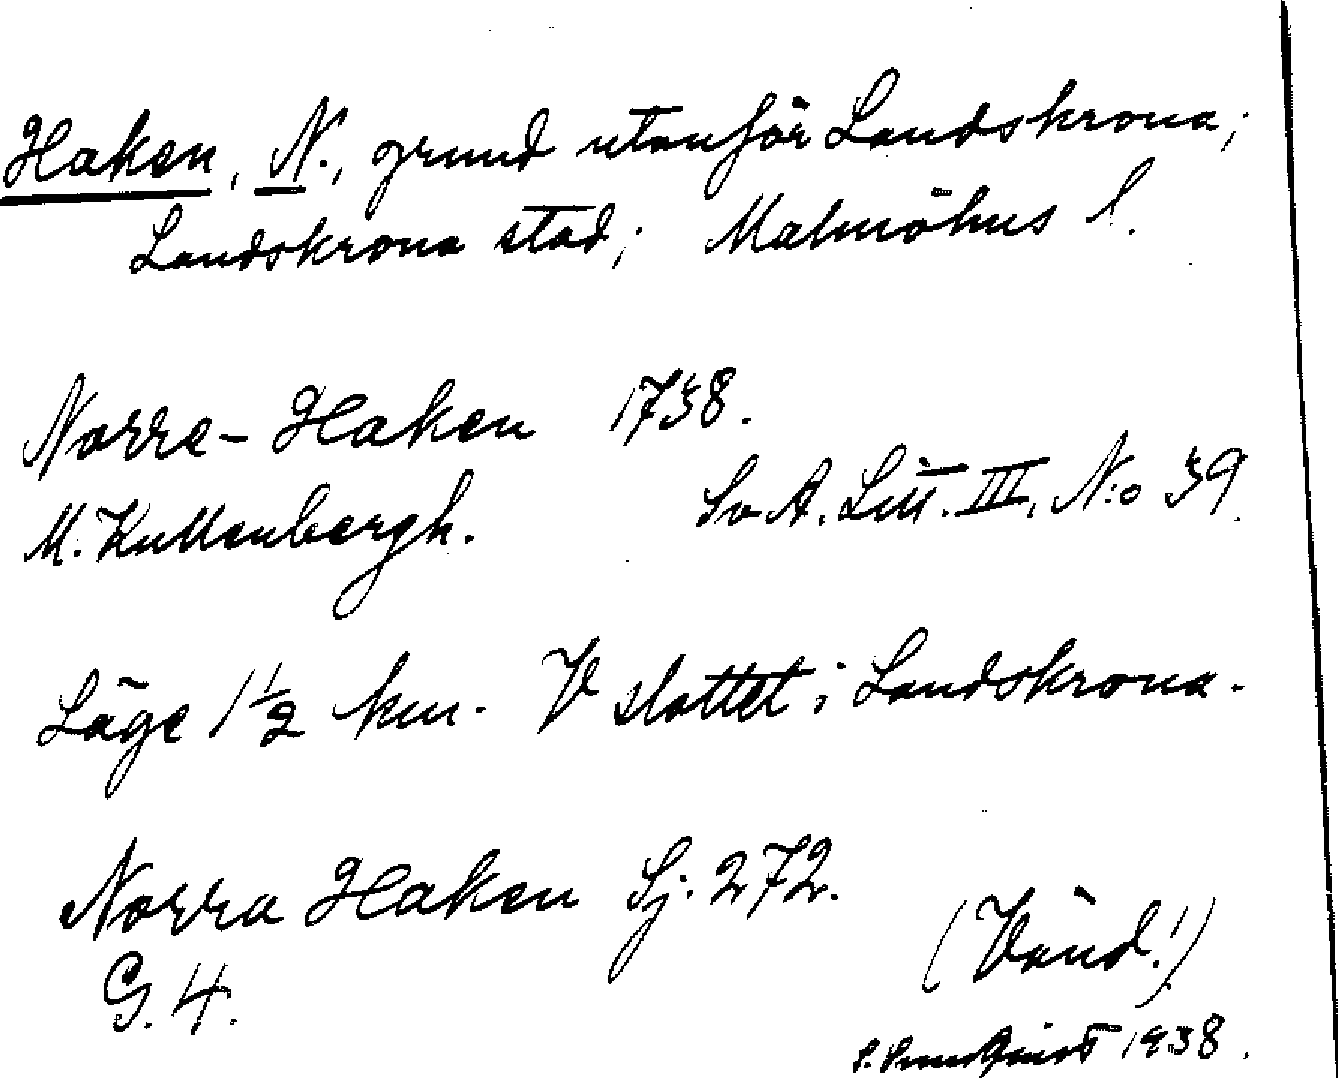 Haken, N., grund utanför Landskrona;
Landskrona stad; Malmöhus l.
Norre-Haken 1738.
M. Kullenbergh. Sv A. Litt. III. N:o 39.
Läge 1 1/2 km. V slottet i Landskrona.
Norra Haken Sj. 272.
G. 4.
(Vänd!)
1938.